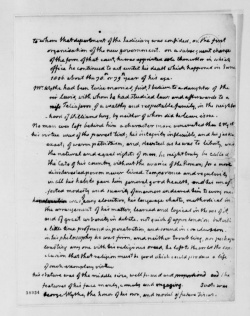 to whom that department of the Judiciary was confided, on the first
organisation of the new government. on a subsequent change
of the form of that court, he was appointed sole Chancellor in which
office he continued to act until his death which happened in June
1806 about the 78th or 79th year of his age.
Mr Wythe had been twice married, first I believe to a daughter of
mr Lewis, with whom he had studied law, and afterwards to a
miss Taliaferro, of a wealthy and respectable family in the neighbor-
hood of Williamsburg, by neither of whom did he leave issue.
No man ever left behind him a character more venerated than G. Wythe
his virtue was of the purest tint; his integrity inflexible, and his justice
exact; of warm patriotism, and, devoted as he was to liberty, and
the natural and equal rights of men, he might truly be called the
Cato of his country, without the avarice of the Roman, for a more
disinterested person never lived. temperance and regularity
in all his habits gave him general good health, and his unaf-
fected modesty and suavity of manners endeared him to every one.
he was of easy elocution, his language chaste, methodical in
the arrangement of his matter, learned and logical in the use of it
and of great urbanity in debate. not quick of apprehension but with
a little time profound in penetration, and sound in conclusion.
in his philosophy he was firm, and neither troubling, nor perhaps
trusting any one with his religious creed, he left to the world the con-
clusion that that religion must be good which could produce a life
of such exemplary virtue.
his stature was of the middle size, well formed and proportioned and the
features of his face manly, comely and engaging. such was
George Wythe, the honor of his own, and model of future times.